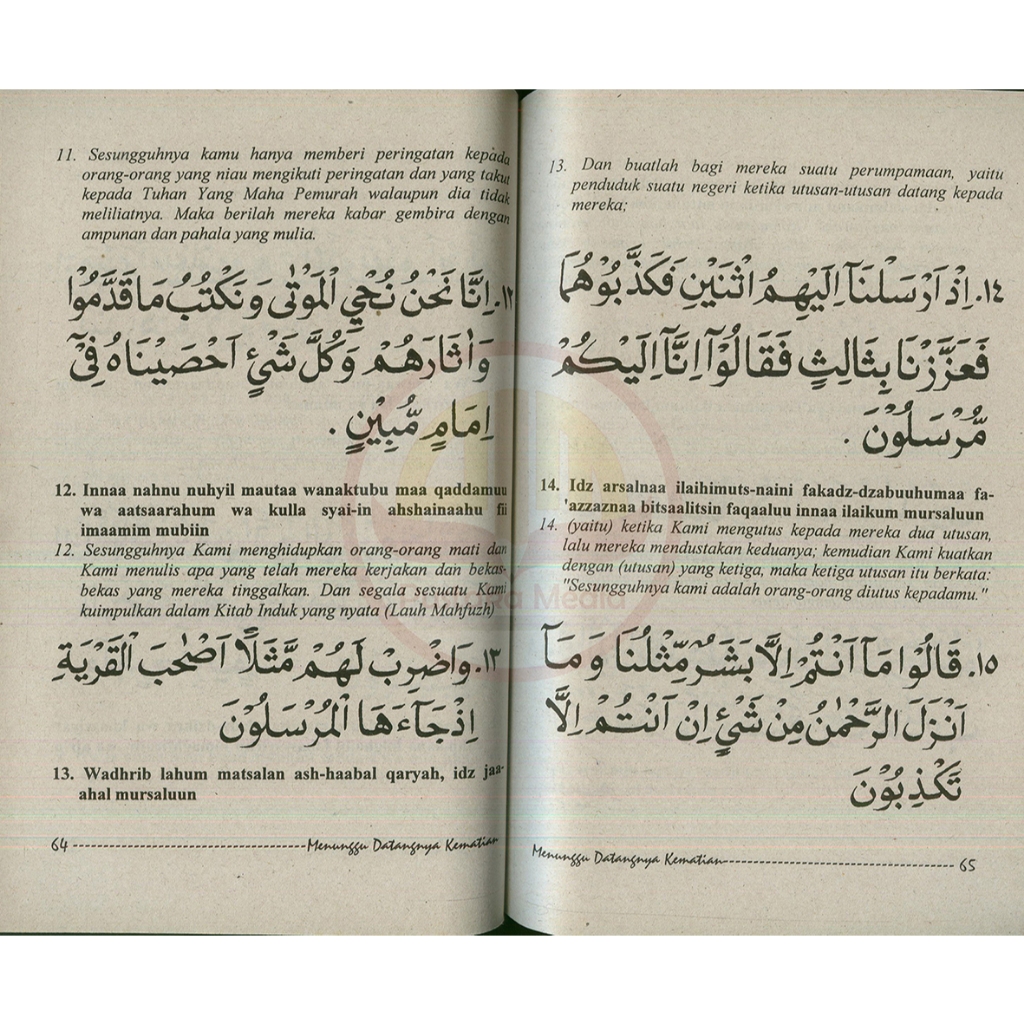 11. Sesungguhnya kamu hanya memberi peringatan kepada
orang-orang yang niau mengikuti peringatan dan yang takut
kepada Tuhan Yang Maha Pemurah walaupun dia tidak
meliliatnya. Maka berilah mereka kabar gembira dengan
ampunan dan pahala yang mulia.
١٢. اِنَّا نَحْنُ نُحْيِ الْمَوْتٰى وَنَكْتُبُ مَا قَدَّمُوْا
وَاٰثَارَهُمْ وَكُلَّ شَيْئٍ اَحْصَيْنَاهُ فِيْٓ
اِمَامٍ مُّبِيْنٍ .
12. Innaa nahnu nuhyil mautaa wanaktubu maa qaddamuu
wa aatsaarahum wa kulla syai-in ahshainaahu fii
imaamim mubiin
12. Sesungguhnya Kami menghidupkan orang-orang mati dan
Kami menulis apa yang telah mereka kerjakan dan bekas-
bekas yang mereka tinggalkan. Dan segala sesuatu Kami
kuimpulkan dalam Kitab Induk yang nyata (Lauh Mahfuzh)
١٣. وَاضْرِبْ لَهُمْ مَّثَلًا اَصْحٰبَ الْقَرْيَةِ
اِذْجَآءَهَا الْمُرْسَلُوْنَ
13. Wadhrib lahum matsalan ash-haabal qaryah, idz jaa-
ahal mursaluun
64 Menunggu Datangnya Kematian
13. Dan buatlah bagi mereka suatu perumpamaan, yaitu
penduduk suatu negeri ketika utusan-utusan datang kepada
mereka;
١٤. اِذْ اَرْسَلْنَآ اِلَيْهِمُ اثْنَيْنِ فَكَذَّبُوْهُمَا
فَعَزَّزْنَا بِثَالِثٍ فَقَالُوْٓا اِنَّآ اِلَيْكُمْ
مُّرْسَلُوْنَ .
14. Idz arsalnaa ilaihimuts-naini fakadz-dzabuuhumaa fa-
'azzaznaa bitsaalitsin faqaaluu innaa ilaikum mursaluun
14. (yaitu) ketika Kami mengutus kepada mereka dua utusan,
lalu mereka mendustakan keduanya; kemudian Kami kuatkan
dengan (utusan) yang ketiga, maka ketiga utusan itu berkata:
"Sesungguhnya kami adalah orang-orang diutus kepadamu."
١٥. قَالُوْا مَآ اَنْتُمْ اِلَّا بَشَرٌ مِّثْلُنَا وَمَآ
اَنْزَلَ الرَّحْمٰنُ مِنْ شَيْئٍ اِنْ اَنْتُمْ اِلَّا
تَكْذِبُوْنَ
Menunggu Datangnya Kematian 65
Media